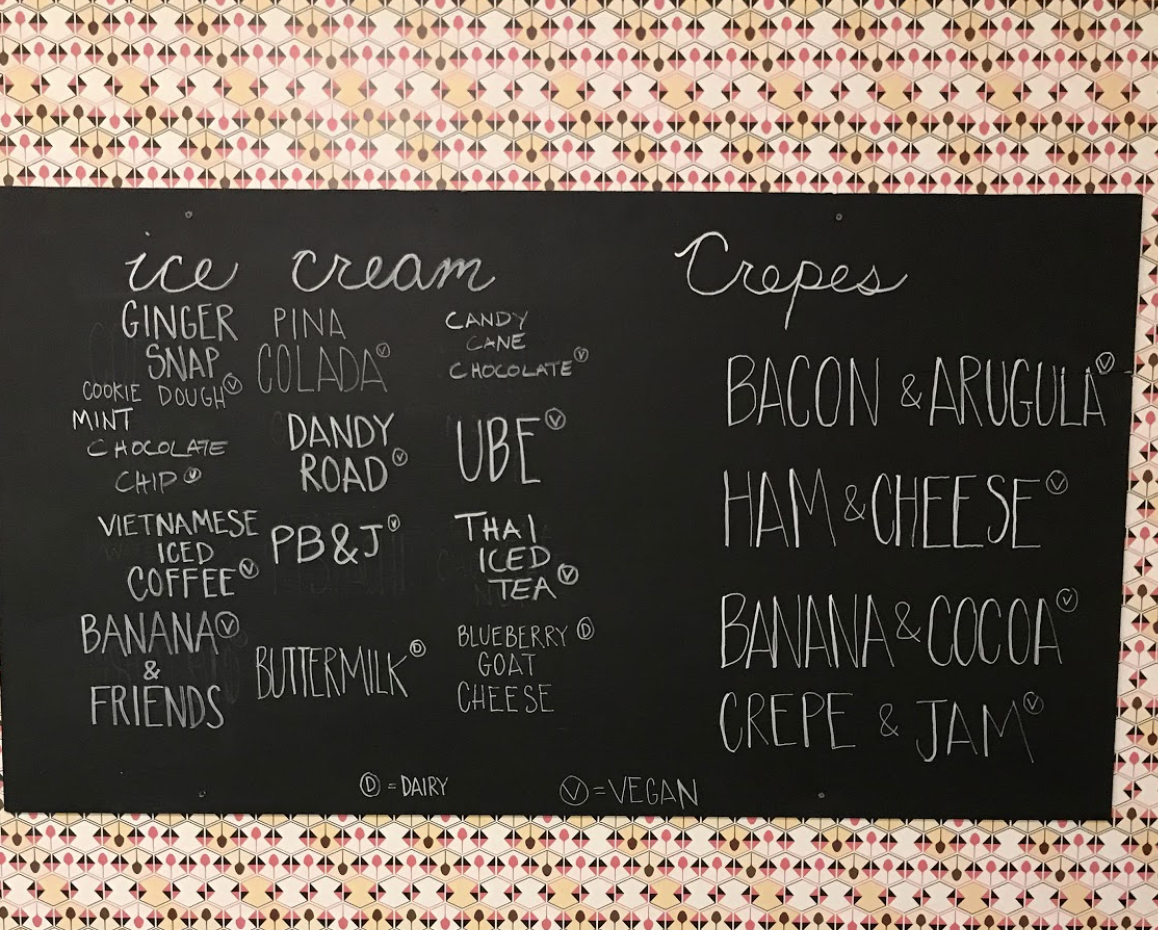 ice cream
GINGER
SNAP
COOKIE DOUGH Ⓥ
MINT
CHOCOLATE
CHIP Ⓥ
VIETNAMESE
ICED
COFFEE Ⓥ
BANANA Ⓥ
&
FRIENDS
PINA
COLADA Ⓥ
DANDY
ROAD Ⓥ
PB&J Ⓥ
BUTTERMILK Ⓓ
CANDY
CANE
CHOCOLATE Ⓥ
UBE Ⓥ
THAI
ICED
TEA Ⓥ
BLUEBERRY Ⓓ
GOAT
CHEESE
Crepes
BACON & ARUGULA Ⓥ
HAM & CHEESE Ⓥ
BANANA & COCOA Ⓥ
CREPE & JAM Ⓥ
Ⓓ = DAIRY
Ⓥ = VEGAN